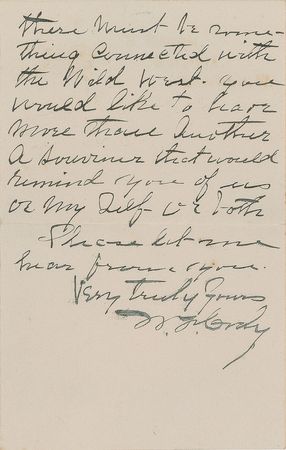 there must be some-
thing connected with
the Wild West. you
would like to have
more than another
A souviner that would
remind you of us
or My Self or both
Please let me
hear from you.
Very truly Yours
W. F. Cody